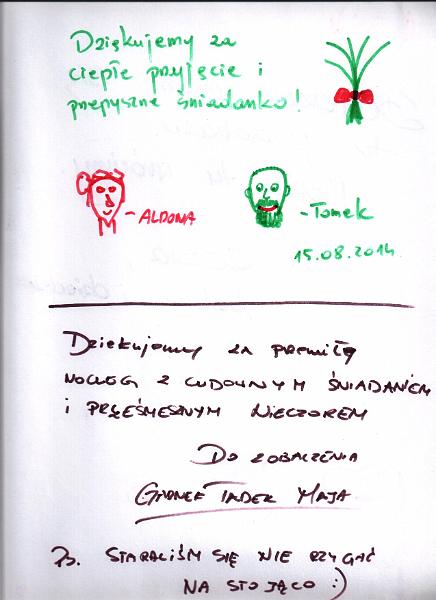 Dziękujemy za
ciepłe przyjęcie i
przepyszne śniadanko!
- ALDONA
- Tomek
15.08.2014
Dziękujemy za przemiłą
NOCLEG Z CUDOWNYM ŚNIADANIEM
i PRZEŚMIESZNYM WIECZOREM
DO ZOBACZENIA
TADEK MAJA
Ps. STARALIŚM SIĘ NIE RZYGAĆ
NA STOJĄCO :)